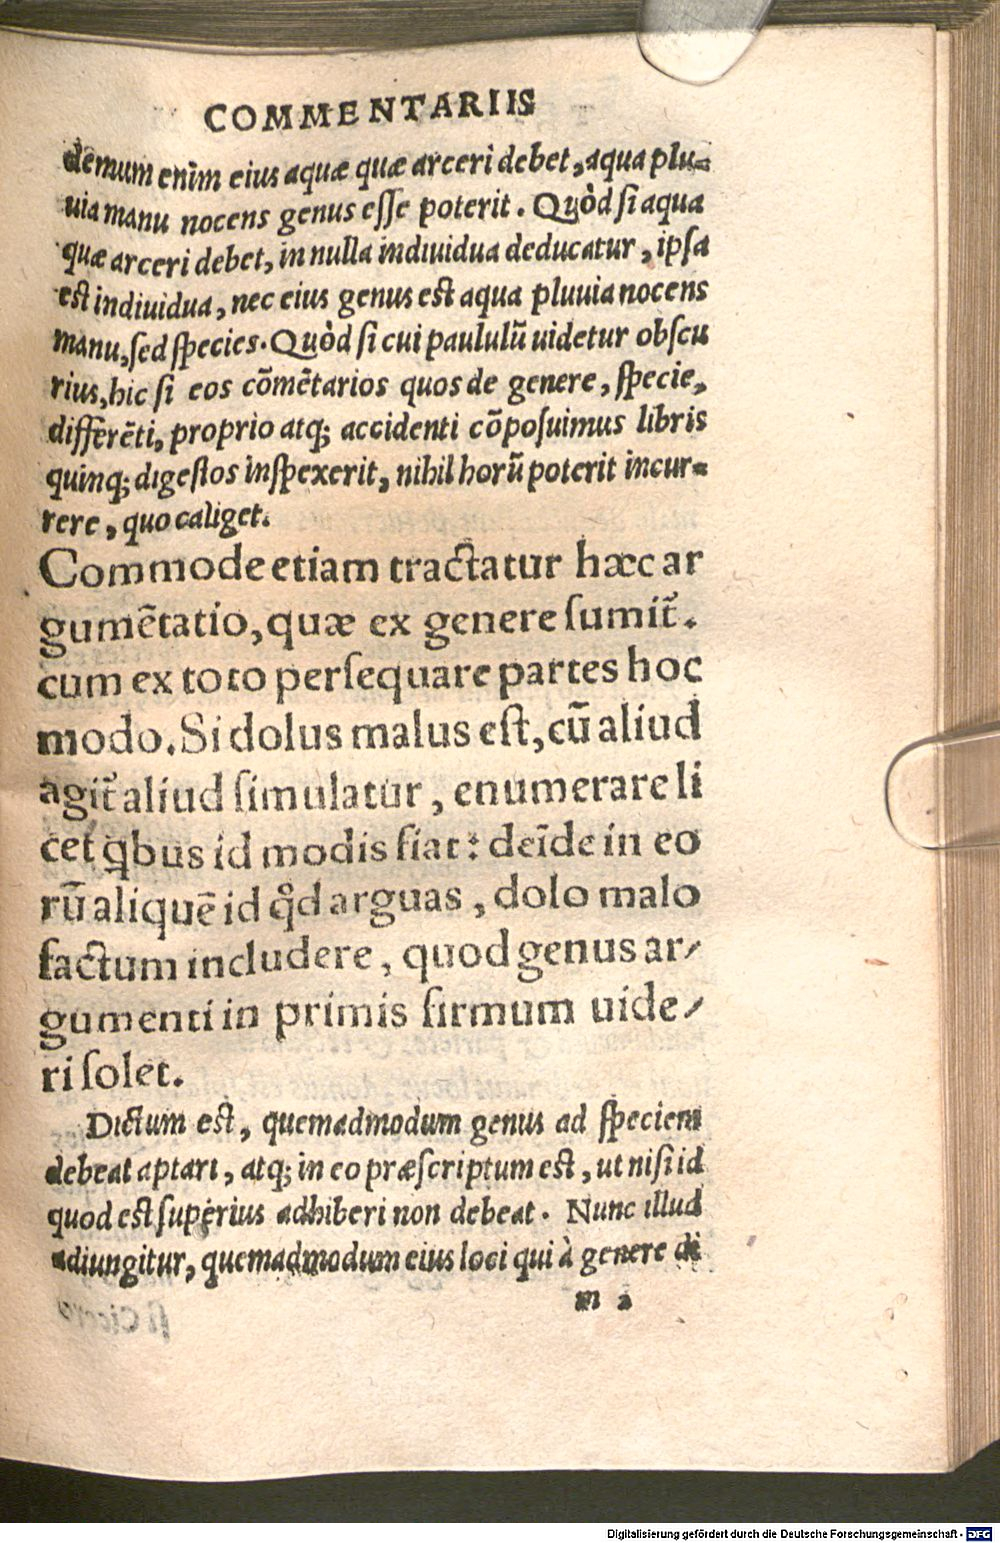 COMMENTARIIS
demum enim eius aquæ quæ arceri debet, aqua plu-
uia manu nocens genus esse poterit. Quòd si aqua
quæ arceri debet, in nulla indiuidua deducatur, ipsa
est indiuidua, nec eius genus est aqua pluuia nocens
manu, sed species. Quòd si cui paululũ uidetur obscu
rius, hic si eos cõmẽtarios quos de genere, specie,
differẽti, proprio atq; accidenti cõposuimus libris
quinq; digestos inspexerit, nihil horũ poterit incur-
rere, quo caliget.
Commode etiam tractatur hæc ar
gumẽtatio, quæ ex genere sumit̃.
cum ex toto persequare partes hoc
modo. Si dolus malus est, cũ aliud
agit̃ aliud simulatur, enumerare li
cet qbus id modis fiat: deĩde in eo
rũ aliquẽ id qd arguas, dolo malo
factum includere, quod genus ar-
gumenti in primis firmum uide-
ri solet.
Dictum est, quemadmodum genus ad speciem
debeat aptari, atq; in eo præscriptum est, ut nisi id
quod est superius adhiberi non debeat. Nunc illud
adiungitur, quemadmodum eius loci qui à genere di
m 2
Digitalisierung gefördert durch die Deutsche Forschungsgemeinschaft - DFG